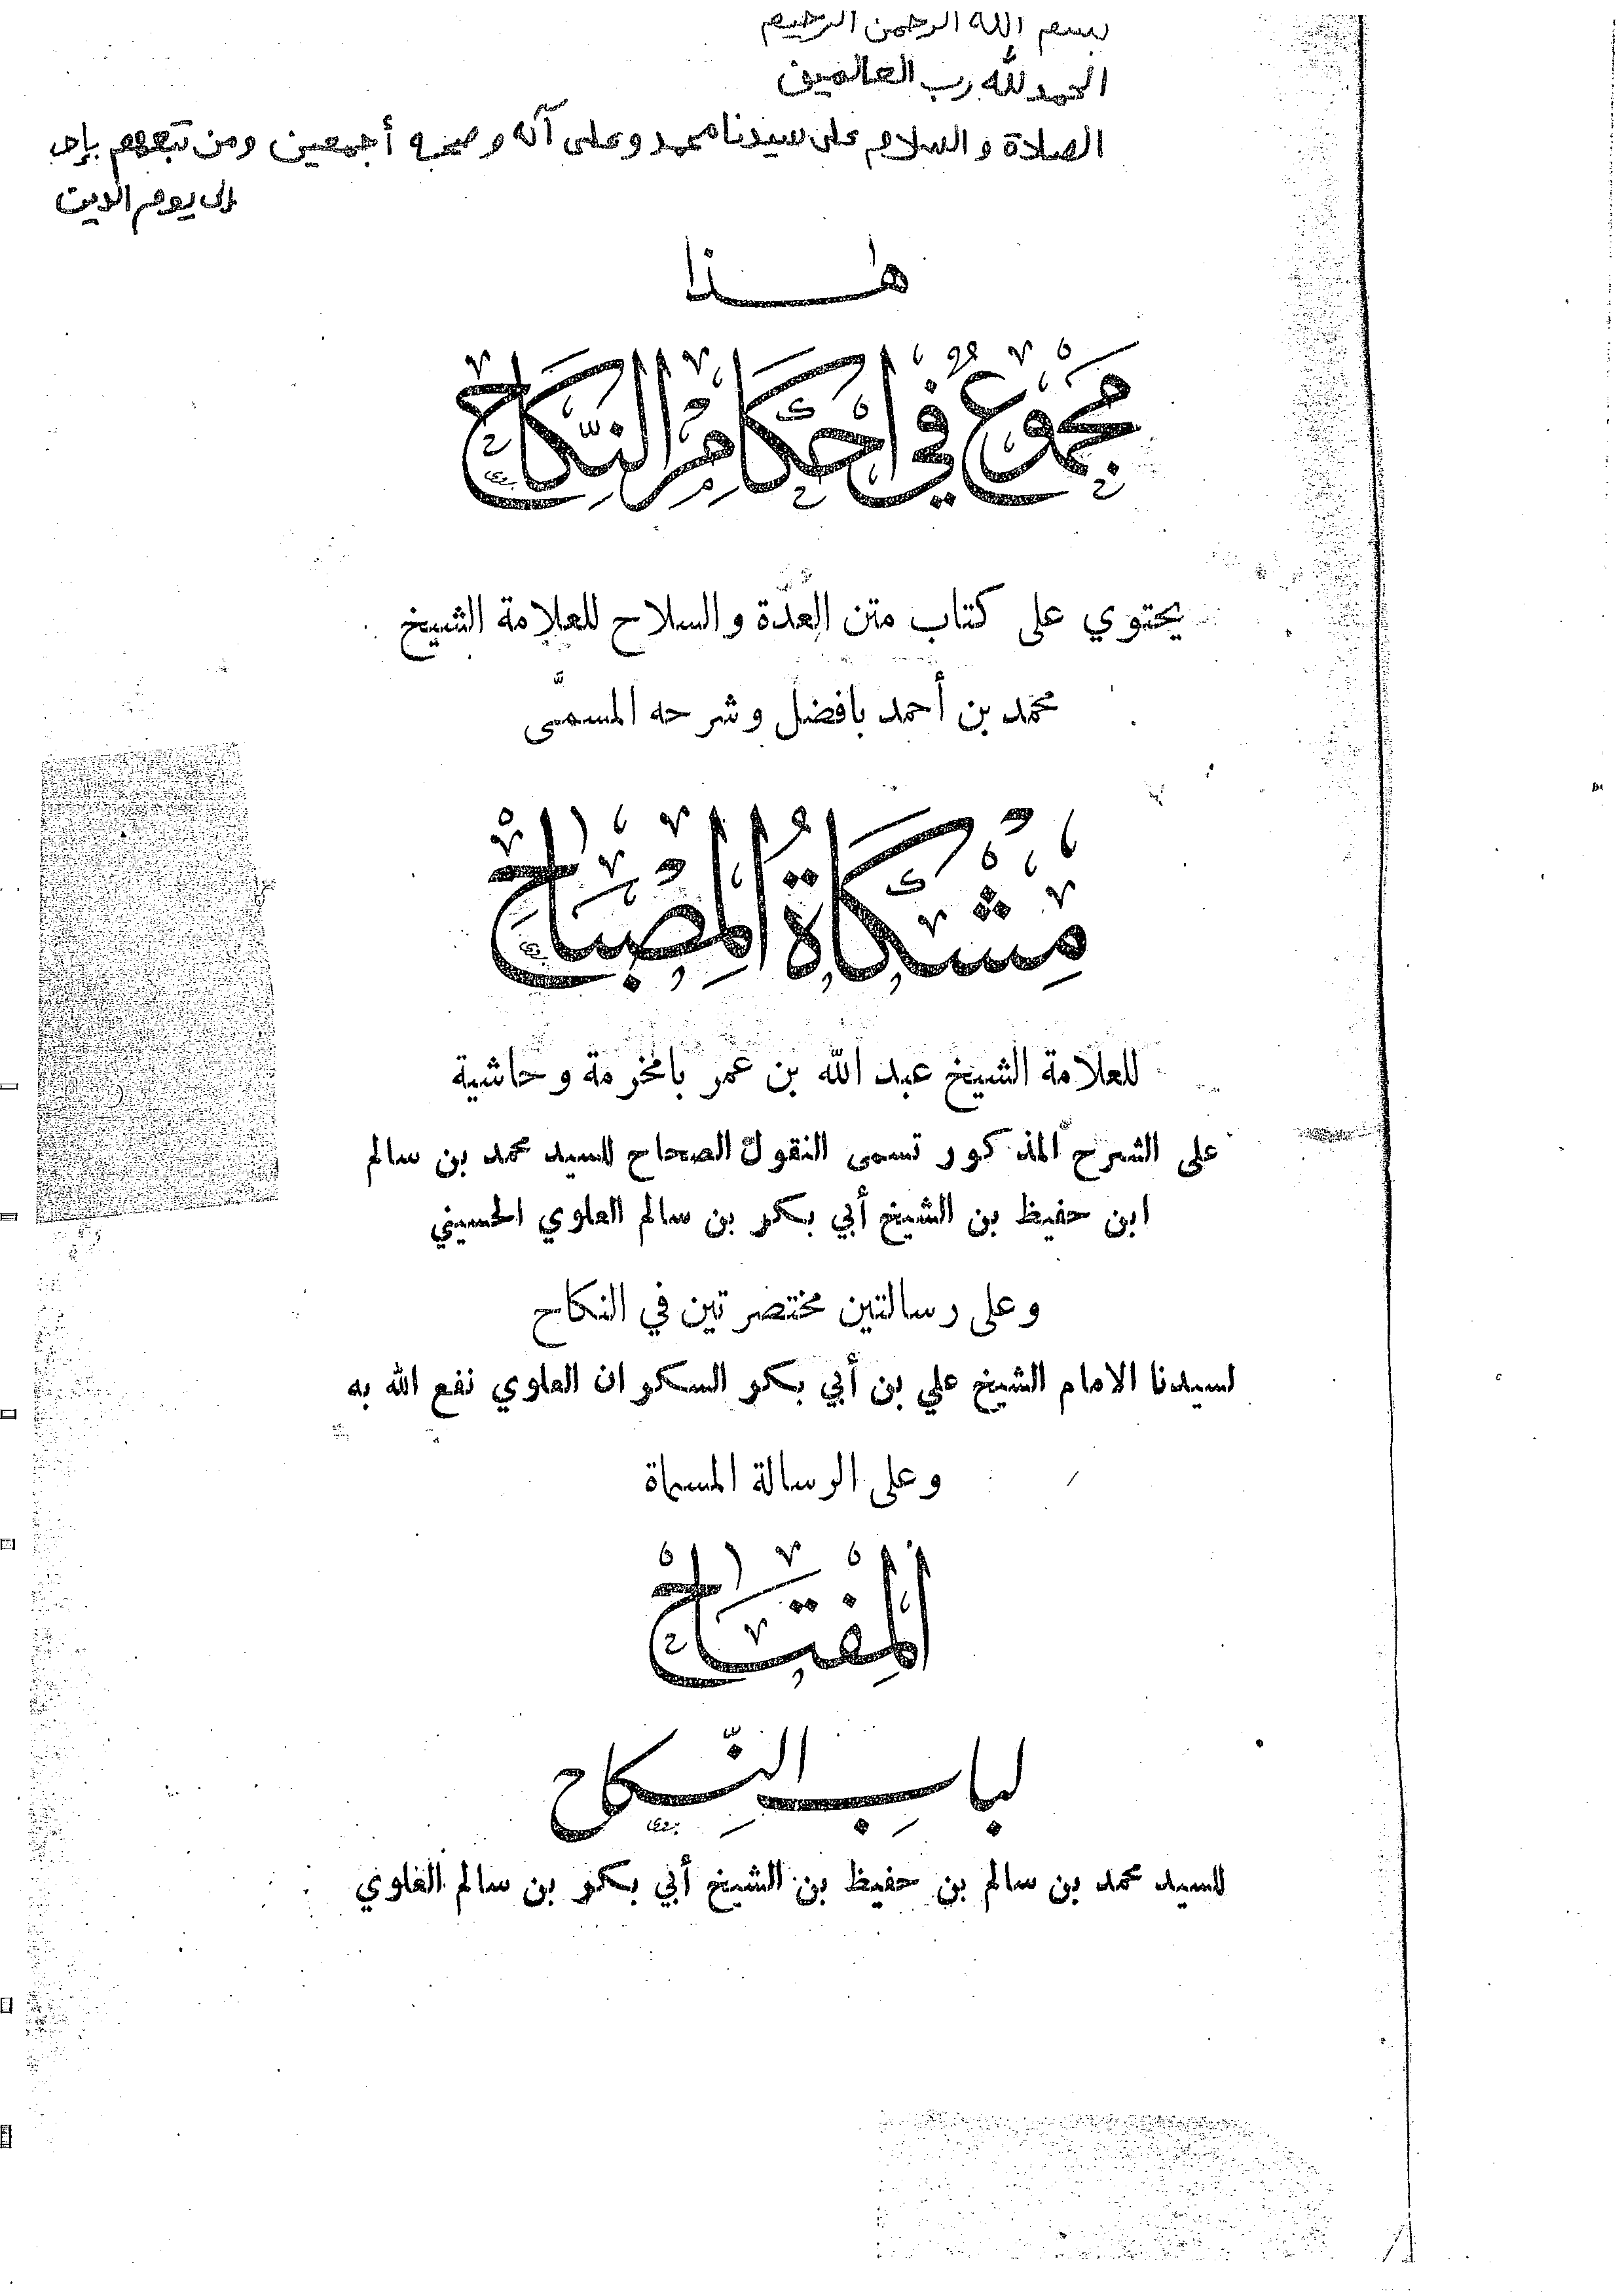 بسم الله الرحمن الرحيم
الحمد لله رب العالمين
الصلاة والسلام على سيدنا محمد وعلى آله وصحبه أجمعين ومن تبعهم
إلى يوم الدين
هذا
مَجْمُوعٌ فِي اَحْكَامِ النِّكَاحِ
يحتوي على كتاب متن العدّة والسلاح للعلامة الشيخ
محمد بن أحمد بافضل وشرحه المسمَّى
مِشْكَاةُ الْمِصْبَاحْ
للعلامة الشيخ عبد الله بن عمر بامخرمة وحاشية
على الشرح المذكور تسمى النقول الصحاح للسيد محمد بن سالم
ابن حفيظ بن الشيخ أبي بكر بن سالم العلوي الحسيني
وعلى رسالتين مختصرتين في النكاح
لسيدنا الامام الشيخ علي بن أبي بكر السكران العلوي نفع الله به
وعلى الرسالة المسماة
الْمِفْتَاحْ
لبابِ النِّكاح
للسيد محمد بن سالم بن حفيظ بن الشيخ أبي بكر بن سالم العلوي